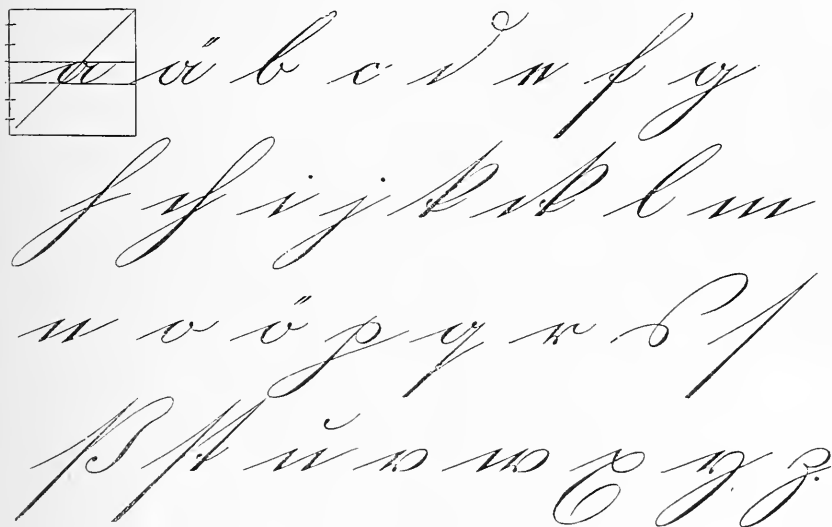 a ä b c d e f g
h ch i j k ck l m
n o ö p q r s ſ
ß ſt u v w x y. z.